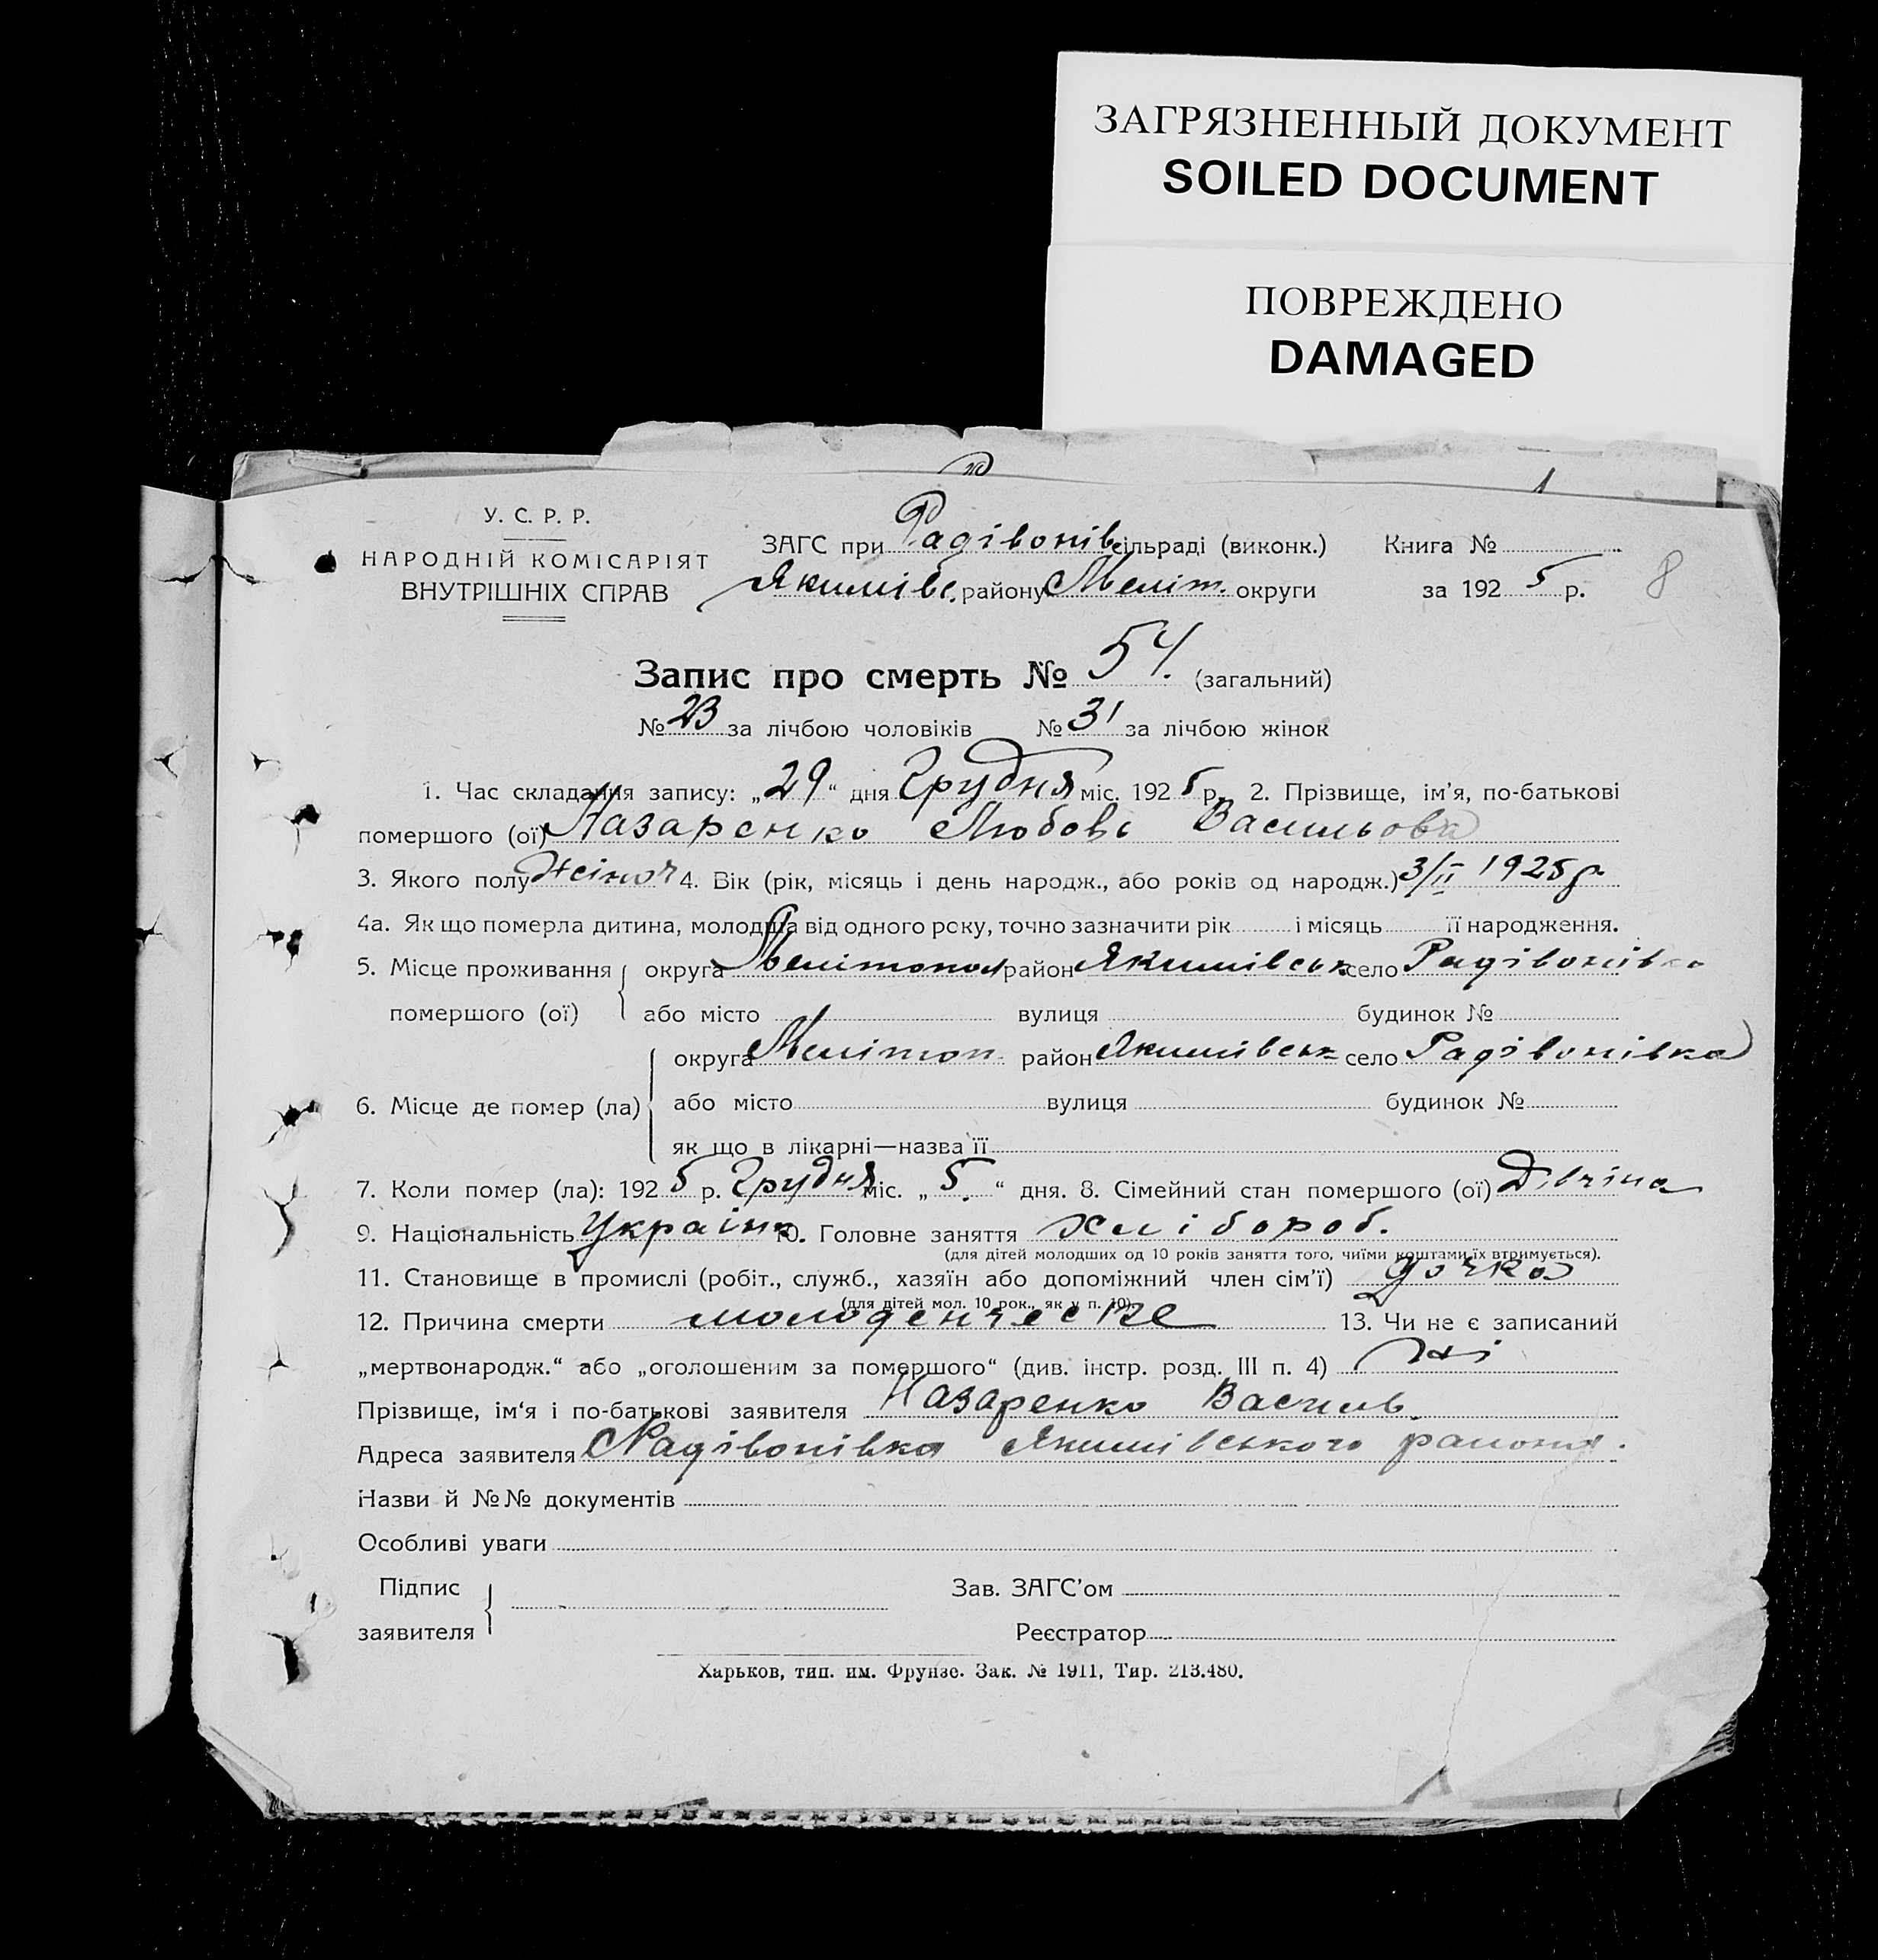 ЗАГРЯЗНЕННЫЙ ДОКУМЕНТ
SOILED DOCUMENT
ПОВРЕЖДЕНО
DAMAGED
У. С. Р. Р.
НАРОДНІЙ КОМІСАРІЯТ
ВНУТРІШНІХ СПРАВ
ЗАГС при Радівонів сільраді (виконк.) Книга №
Якимівс. району Меліт. округи за 1925 р.
8
Запис про смерть № 54. (загальний)
№ 23 за лічбою чоловіків № 31 за лічбою жінок
1. Час складання запису: „29“ дня Грудня міс. 1925 р. 2. Прізвище, ім'я, по-батькові
помершого (ої) Назаренко Любовь Васильова
3. Якого полу Жіноч 4. Вік (рік, місяць і день народж., або років од народж.) 3/II 1925 р.
4а. Як що померла дитина, молодша від одного року, точно зазначити рік і місяць її народження.
5. Місце проживання помершого (ої) округа Мелітопол район Якимівськ село Радівонівка
або місто вулиця будинок №
6. Місце де помер (ла) округа Мелітоп. район Якимівськ село Радівонівка
або місто вулиця будинок №
як що в лікарні—назва її
7. Коли помер (ла): 1925 р. Грудня міс. „5.“ дня. 8. Сімейний стан помершого (ої) Дівчіна
9. Національність Україн. 10. Головне заняття хлібороб.
(для дітей молодших од 10 років заняття того, чиїми коштами їх втримується).
11. Становище в промислі (робіт., служб., хазяїн або допоміжний член сім'ї) дочка
(для дітей мол. 10 рок., як у п. 10).
12. Причина смерти молоденческе 13. Чи не є записаний
„мертвонародж.“ або „оголошеним за помершого“ (див. інстр. розд. III п. 4) Ні
Прізвище, ім'я і по-батькові заявителя Назаренко Василь.
Адреса заявителя Радівонівка Якимівського района.
Назви й №№ документів
Особливі уваги
Підпис заявителя
Зав. ЗАГС'ом
Реєстратор
Харьков, тип. им. Фрунзе. Зак. № 1911, Тир. 213.480.